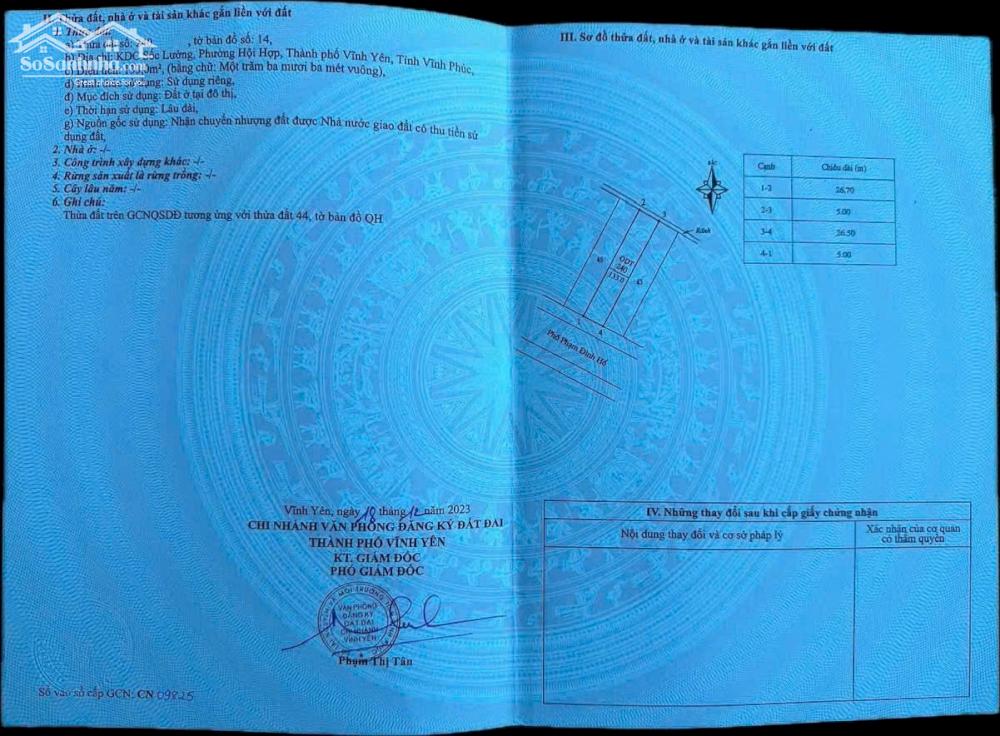 II. Thửa đất, nhà ở và tài sản khác gắn liền với đất
1. Thửa đất:
a) Thửa đất số: 240, tờ bản đồ số: 14,
b) Địa chỉ: KDC Gốc Lường, Phường Hội Hợp, Thành phố Vĩnh Yên, Tỉnh Vĩnh Phúc,
c) Diện tích: 133,0m², (bằng chữ: Một trăm ba mươi ba mét vuông),
d) Hình thức sử dụng: Sử dụng riêng,
đ) Mục đích sử dụng: Đất ở tại đô thị,
e) Thời hạn sử dụng: Lâu dài,
g) Nguồn gốc sử dụng: Nhận chuyển nhượng đất được Nhà nước giao đất có thu tiền sử
dụng đất,
2. Nhà ở: -/-
3. Công trình xây dựng khác: -/-
4. Rừng sản xuất là rừng trồng: -/-
5. Cây lâu năm: -/-
6. Ghi chú:
Thửa đất trên GCNQSDĐ tương ứng với thửa đất 44, tờ bản đồ QH
SoSanhnha.com
Vĩnh Yên, ngày 18 tháng 12 năm 2023
CHI NHÁNH VĂN PHÒNG ĐĂNG KÝ ĐẤT ĐAI
THÀNH PHỐ VĨNH YÊN
KT. GIÁM ĐỐC
PHÓ GIÁM ĐỐC
VĂN PHÒNG
ĐĂNG KÝ
ĐẤT ĐAI
CHI NHÁNH
VĨNH YÊN
Phạm Thị Tân
Số vào sổ cấp GCN: CN 09825
III. Sơ đồ thửa đất, nhà ở và tài sản khác gắn liền với đất
BẮC
Cạnh Chiều dài (m)
1-2 26.70
2-3 5.00
3-4 26.50
4-1 5.00
2
3
Rãnh
ODT
240
133.0
43
1
4
Phố Phạm Đình Hổ
IV. Những thay đổi sau khi cấp giấy chứng nhận
Nội dung thay đổi và cơ sở pháp lý
Xác nhận của cơ quan
có thẩm quyền